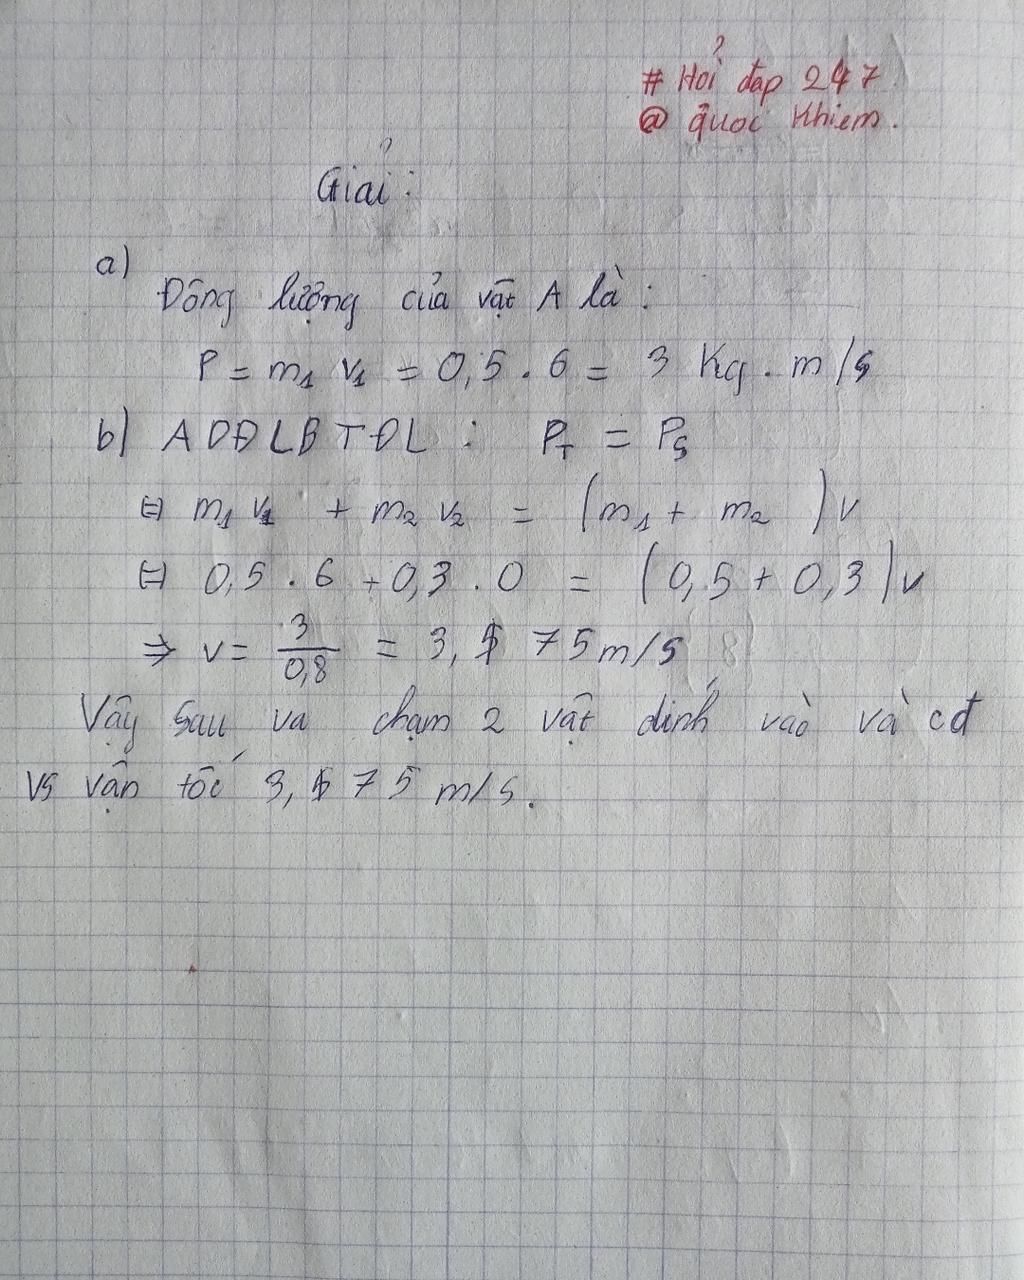 # Hỏi đáp 247
@ quốc Khiêm.
Giải:
a)
Động lượng của vật A là:
P = m₁ v₁ = 0,5 . 6 = 3 Kg . m/s
b) ADĐLBTĐL : P_T = P_S
⇔ m₁ v₁ + m₂ v₂ = (m₁ + m₂ )v
⇔ 0,5 . 6 + 0,3 . 0 = (0,5 + 0,3)v
⇒ v = 3/0,8 = 3,75 m/s
Vậy sau va chạm 2 vật dính vào và cđ
vs vận tốc 3,75 m/s.